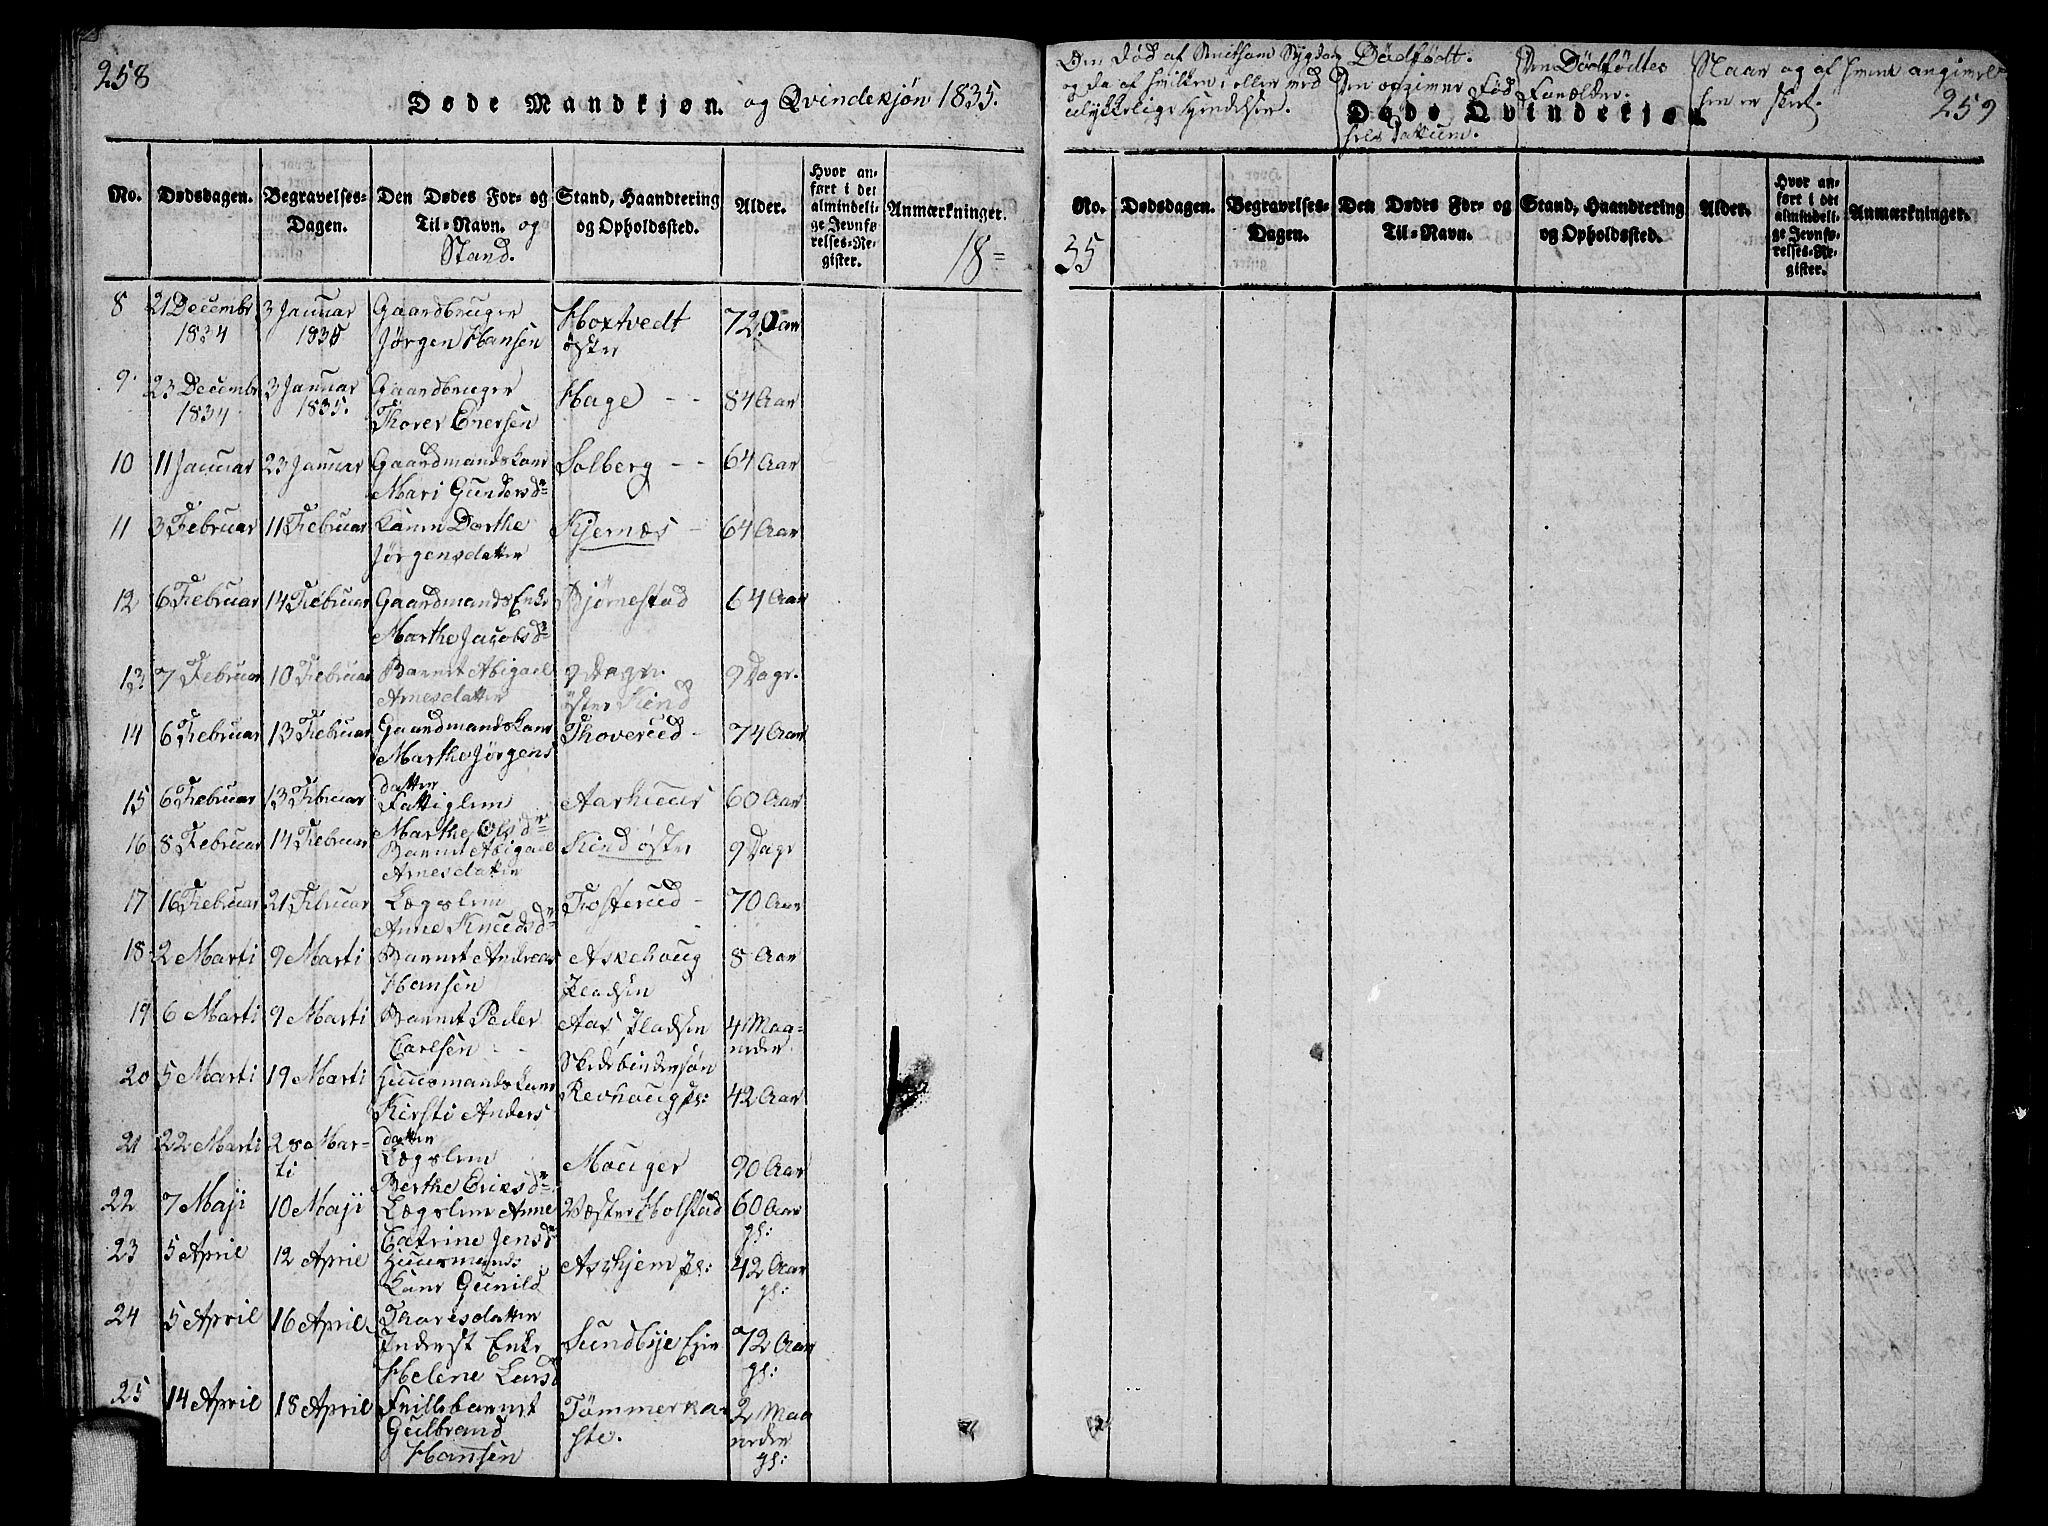 258
Døde Mandkjøn. og Qvindekjøn 1835.
No. Dødsdagen. Begravelses-Dagen. Den Dødes For- og Til-Navn. og Stand. Stand, Haandtering og Opholdssted. Alder. Hvor anført i det almindelige Jevnførelses-Register. Anmærkninger.
18=
8 21 Decembr 1834 3 Januar 1835 Gaardbruger Jørgen Hansen Hoxtvedt øster 72 Aar
9 23 Decembr 1834 3 Januar 1835. Gaardbruger Thorer Enersen Hage - - 84 Aar
10 11 Januar 23 Januar Gaardmandskone Mari Gundersd Solberg - - 64 Aar
11 3 Februar 11 Februar Karen Dorthe Jørgensdatter Kjernæs - 64 Aar
12 6 Februar 14 Februar Gaardmands Enke Marthe Jacobsd Bjørnestad 64 Aar
13 7 Februar 10 Februar Barnet Abigael Arnesdatter 9 Dage. øster Kind 9 Dage.
14 6 Februar 13 Februar Gaardmandskone Marthe Jørgens datter Thoverud - 74 Aar
15 6 Februar 13 Februar Fattiglem Marthe Olsd Aarhuus 60 Aar
16 8 Februar 14 Februar Barnet Abigael Arnesdatter Kind øster 9 Dage
17 16 Februar 21 Februar Lægslem Anne Knudsd Fosterud - 70 Aar
18 2 Marti 9 Marti Barnet Andreas Hansen Askehoug Pladsen 8 Aar
19 6 Marti 9 Marti Barnet Peder Carlsen - - Aas Pladsen 4 Maaneder.
20 5 Marti 19 Marti Huusmandskone Kirsti Anders datter Revhoug Pl: 42 Aar
21 22 Marti 28 Marti Lægslem Berthe Eriksd Mouger 90 Aar
22 7 Maji 10 Maji Lægslem Anne Catrine Jensd Væster Holstad 60 Aar gl:
23 5 April 12 April Huusmands Kone Gunild Thoresdatter Askjem Pl: 42 Aar gl:
24 5 April 16 April. Inderst Enke Helene Larsd Sundbye Eje 72 Aar gl:
25 14 April 18 April Frillebarnet Gulbrand Hansen Tømmerkaste. 2 Maaneder gl:
Om død af Smitsom Sygdom og da af hvilken, eller ved ulykkelige Hændelser.
Dødfødt. Den opgivne Fødsels Datum.
Den Dødfødtes Forælder.
Naar og af hvem angivelsen er skeet.
259
Døde Qvindekjøn.
No. Dødsdagen. Begravelses-Dagen. Den Dødes For- og Til-Navn. Stand, Haandtering og Opholdssted. Alder. Hvor anført i det almindelige Jevnførelses-Register. Anmærkninger.
35